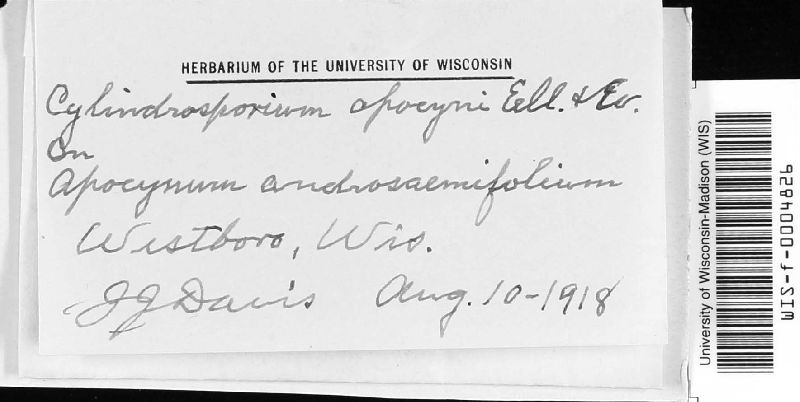 HERBARIUM OF THE UNIVERSITY OF WISCONSIN
Cylindrosporium apocyni Ell. & Ev.
On
Apocynum androsaemifolium
Westboro, Wis.
JJ Davis Aug. 10-1918
University of Wisconsin-Madison (WIS)
WIS-f-0004826